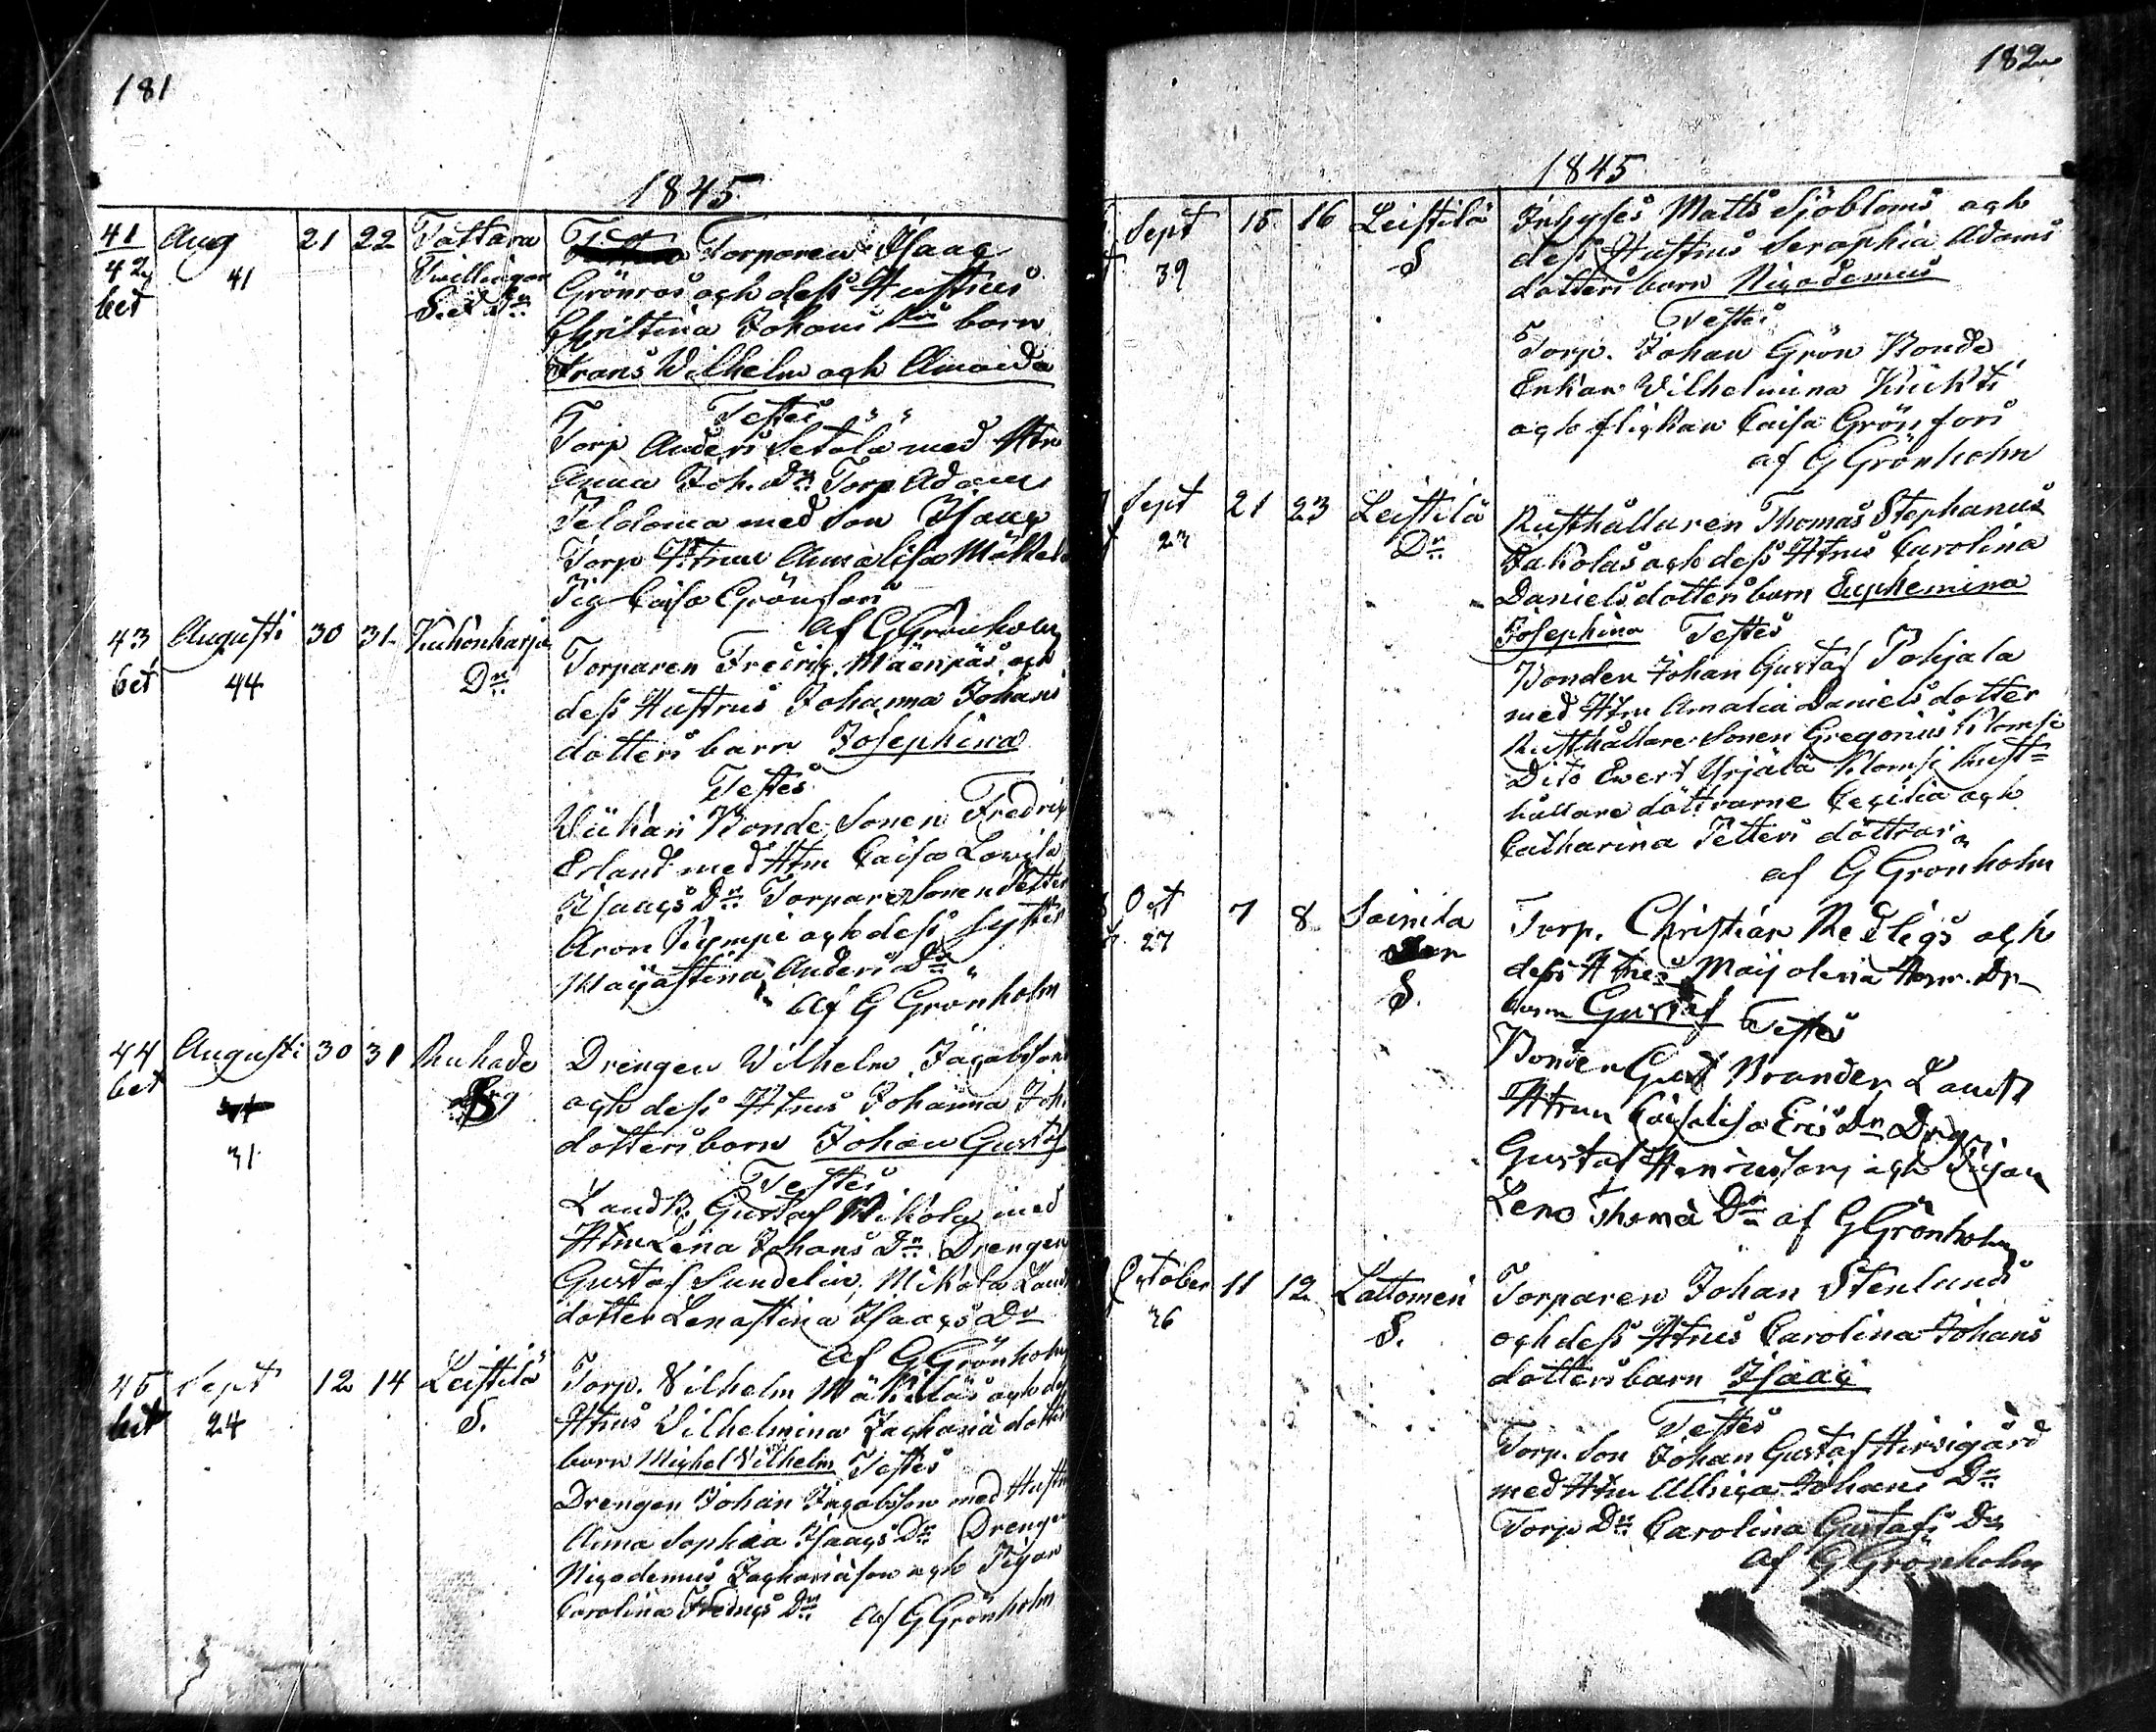 181
1845
41 Aug 21 22 Tattara Torparen Isaac
42 41 Twillingar
bet S. et Dr
Grönros och dess Hustrus
Christina Johans Drs barn
Frans Wilhelm och Amanda
Testes
Torp Anders Setälä med Htru
Anna Joh. Dr Torp Adam
med Son Isaac
Torp Htrun Annalisa
Pig Caisa Grönfors
af G Grönholm
43 Augusti 30 31 Torparen Fredric Mäenpäs och
bet 44 Dr dess Hustrus Johanna Johans
dotters barn Josephina
Testes
Bonde Sonen Fredric
Erland med Htru Caisa Lovisa
Isaacs Dr Torpare Sonen
Aron och dess Syster
Majastina Anders Dr
Af G Grönholm
44 Augusti 30 31 Drengen Wilhelm Jacobsons
bet och dess Htrus Johanna Joh.
31 dotters barn Johan Gustaf
Testes
Landb. Gustaf Mikola med
Htru Lena Johans Dr Drengen
Gustaf Sundelin, Mikola Land
dotter Lenastina Isaacs Dr
af G Grönholm
45 Sept 12 14 Leistilä Torp. Vilhelm
bet 24 S. Htrus Vilhelmina Zacharia dotters
barn Michel Vilhelm Testes
Drengen Johan Jacobsson med Hustru
Anna Sophia Isaacs Dr Drengen
Nicodemus Zachariason och Pigan
Carolina Fredrics Dr af G Grönholm
182
1845
Sept 15 16 Leistilä Inhyses Matts Sjöbloms och
39 S dess Hustrus Seraphia Adams
dotters barn Nicodemus
Testes
Torp. Johan Grön Bonde
Enkan Vilhelmina
och flickan Caisa Grönfors
af G Grönholm
Sept 21 23 Leistilä Rusthållaren Thomas Stephanus
23 Dr och dess Htrus Carolina
Daniels dotters barn Euphemina
Josephina Testes
Bonden Johan Gustaf Pohjala
med Htru Amalia Daniels dotter
Rusthållare Sonen Gregorius Klomsi
Dito Evert Yrjälä Klomsi Rust=
hållare döttrarne Cecilia och
Catharina Petters döttrar
af G Grönholm
Oct 7 8 Torp. Christian Redligs och
27 S. dess Htrus Maj olena Dr
barn Gustaf Testes
Bonden Gust Brander Landb
Htrun Cajsalisa Erics Dr Drg
Gustaf Henricsson och Pigan
Lena Thoma Dr af G Grönholm
October 11 12 Lattomeri Torparen Johan Stenlunds
36 S. och dess Htrus Carolina Johans
dotters barn Isaac
Testes
Torp. Son Johan Gustaf Hirvigård
med Htru Ulrica Johans Dr
Torp Dr Carolina Gustafs Dr
af G Grönholm